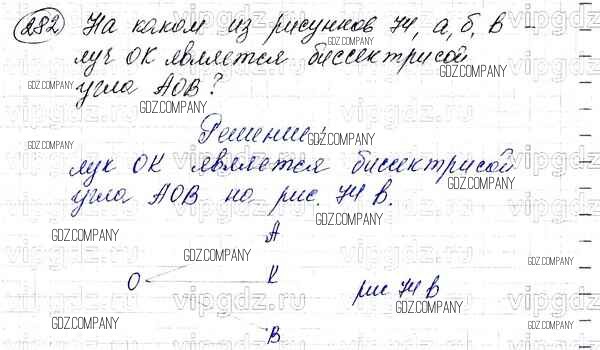 282 На каком из рисунков 74, а, б, в
луч ОК является биссектрисой
угла АОВ?
Решение:
лук ОК является биссектрисой
угла АОВ на рис. 74 в.
А
О К рис 74 в
В
vipgdz.ru
GDZ.COMPANY